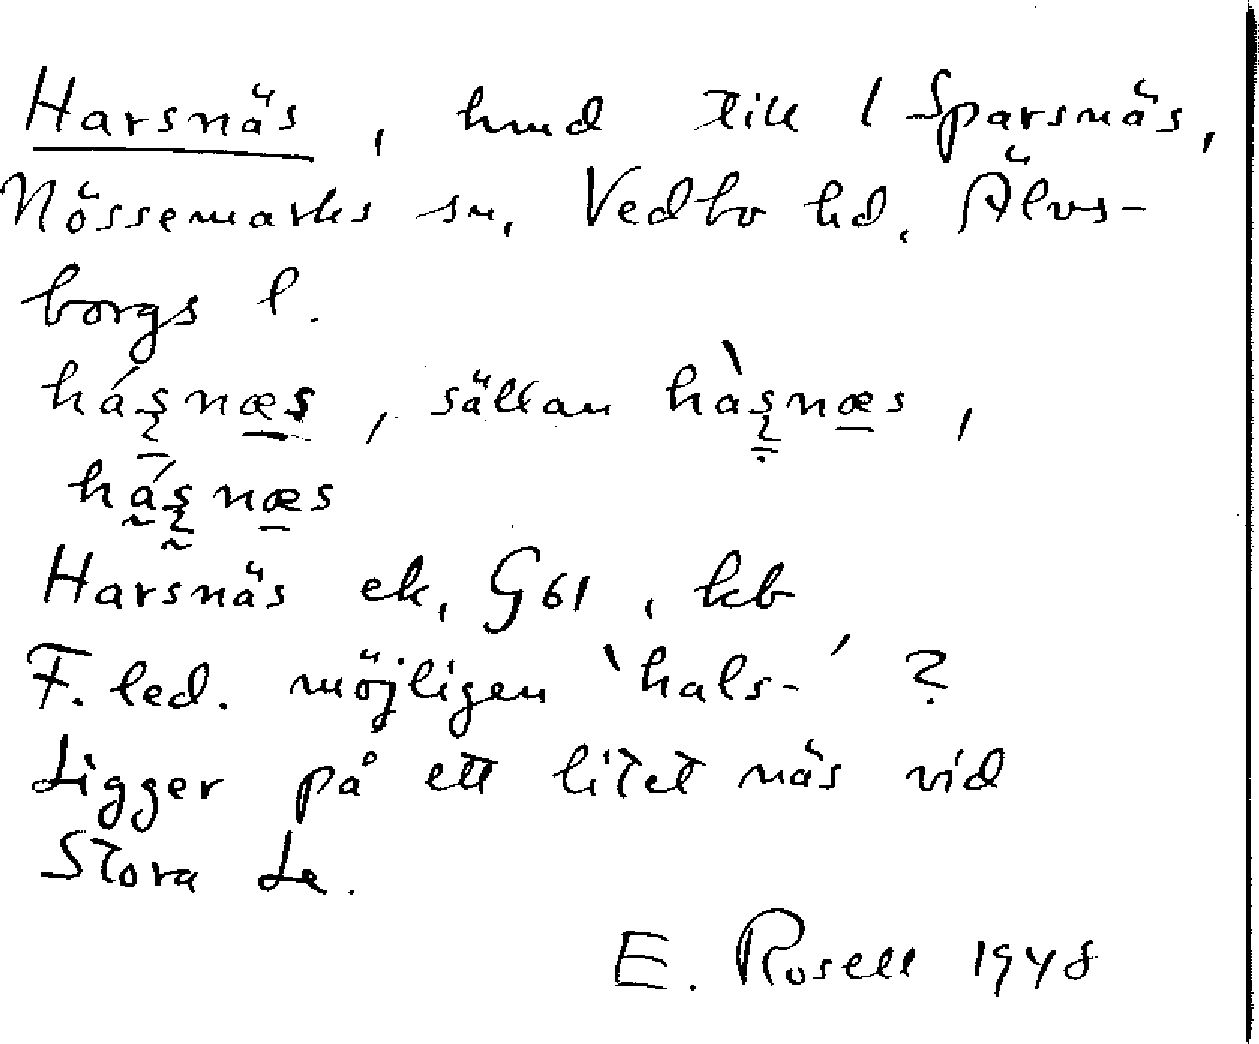 Harsnäs, hmd till 1 Sparsnäs,
Nössemarks sn, Vedbo hd, Älvs-
borgs l.
hás̨næs, sällan hàs̨næs,
hás̨næs
Harsnäs ek, G61, kb
F. led. möjligen 'hals-' ?
Ligger på ett litet näs vid
Stora Le.
E. Rosell 1948